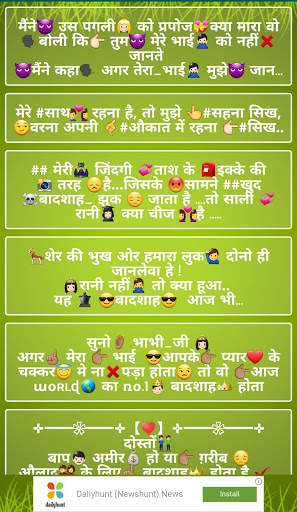 मैंने😈 उस पगली👩 को प्रपोज💝क्या मारा वो
🗣बोली कि👉 तुम😈 मेरे भाई🙎 को नहीं❌
जानते
😈मैंने कहा🗣 अगर तेरा_भाई🙎 मुझे😈 जान...
मेरे #साथ👫 रहना है, तो मुझे 👆#सहना सिख,
😏वरना अपनी #औकात में रहना 👉#सिख..
## मेरी जिंदगी 💞ताश के इक्के की
📷 तरह 😞है...जिसके 😡सामने ##खुद
☠बादशाह_ झुक 😔 जाता है ...तो साली 💞
रानी क्या चीज है .....
शेर की भुख ओर हमारा लुक दोनो ही
जानलेवा हे !
रानी नहीं तो क्या हुआ..
यह 😎बादशाह😎 आज भी...
सुनो👂 भाभी_जी 👸
अगर मेरा 👉 भाई 😎आपके प्यार❤ के
चक्कर😇 मे ना❌पड़ा होता😒 तो वो 👉आज
ɯoʀʟɖ🌎 का no.1 बादशाह👑 होता
【❤】
दोस्तों👬
बाप अमीर💰 हो या ग़रीब 😔
औलाद के लिए बादशाह👑 होता है ✔
dailyhunt
Dailyhunt (Newshunt) News
Install